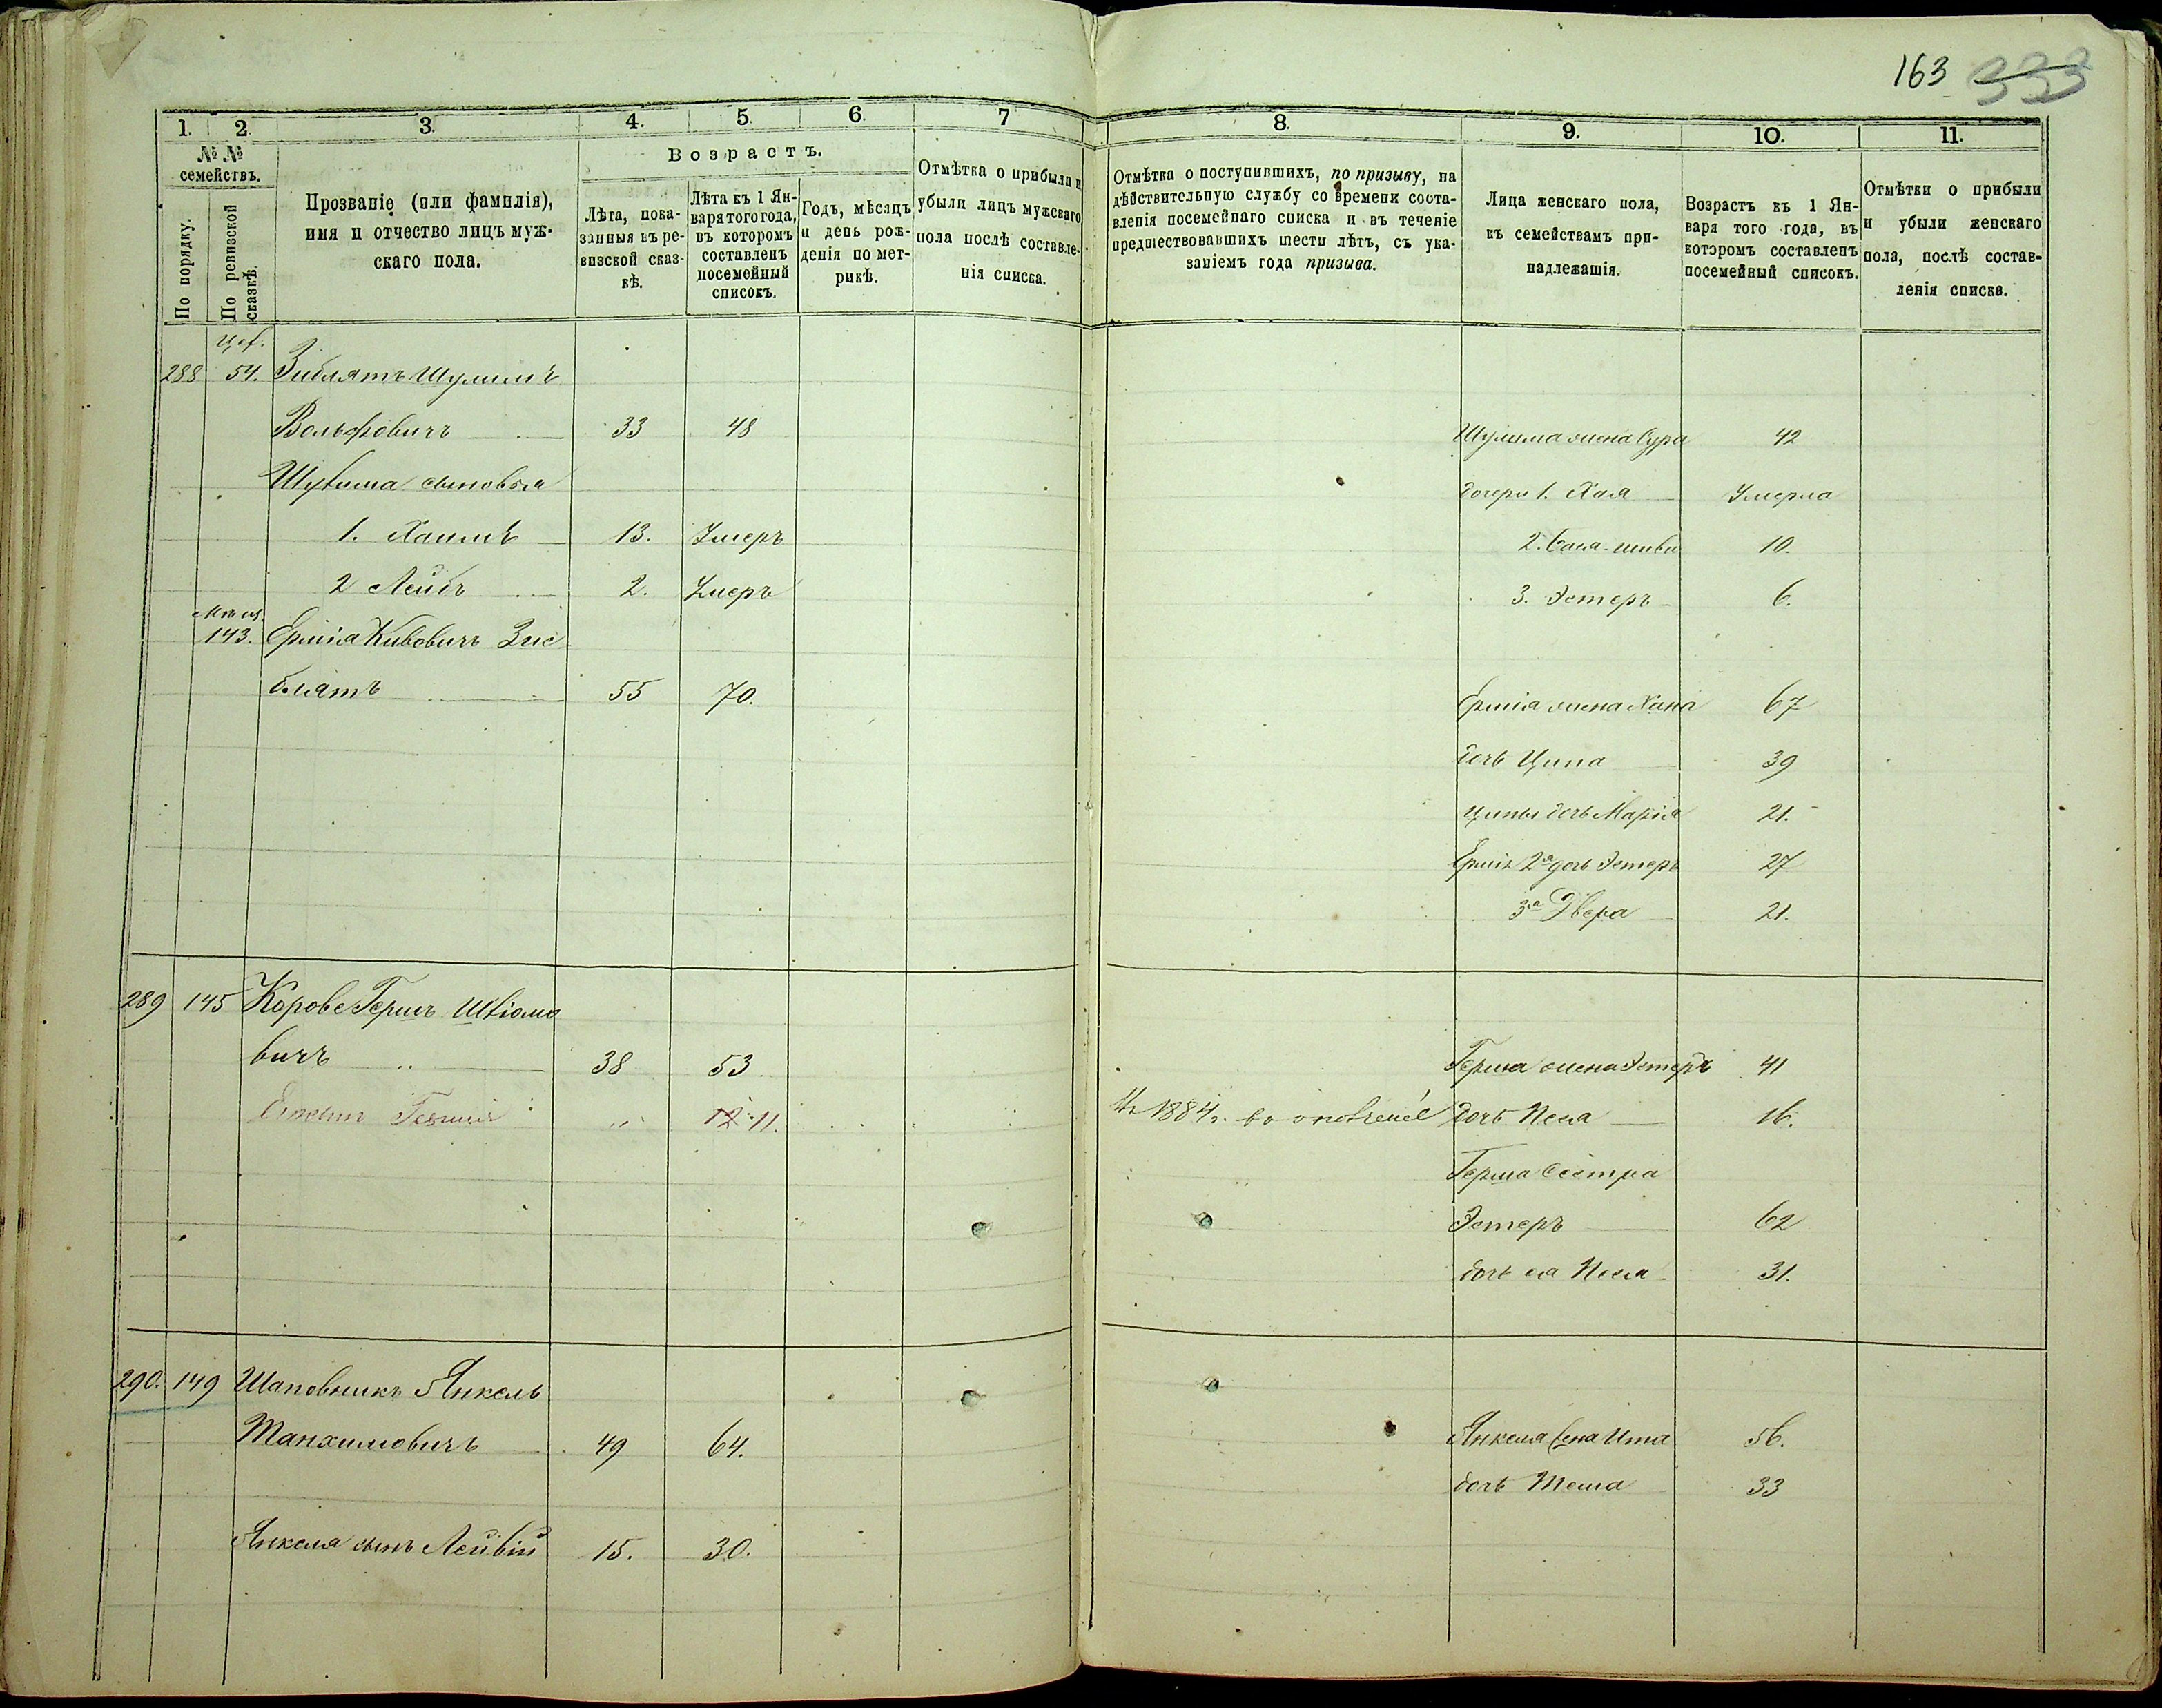 163 333
1. 2. 3. 4. 5. 6. 7 8. 9. 10. 11.
№ №
семействъ.
По порядку.
По ревизской
сказкѣ.
Прозваніе (или фамилія),
имя и отчество лицъ муж-
скаго пола.
Возрастъ.
Лѣта, пока-
занныя въ ре-
визской сказ-
кѣ.
Лѣта къ 1 Ян-
варя того года,
въ которомъ
составленъ
посемейный
списокъ.
Годъ, мѣсяцъ
и день рож-
денія по мет-
рикѣ.
Отмѣтка о прибыли и
убыли лицъ мужскаго
пола послѣ составле-
нія списка.
Отмѣтка о поступившихъ, по призыву, на
дѣйствительную службу со времени соста-
вленія посемейнаго списка и въ теченіе
предшествовавшихъ шести лѣтъ, съ ука-
заніемъ года призыва.
Лица женскаго пола,
къ семействамъ при-
надлежащія.
Возрастъ къ 1 Ян-
варя того года, въ
которомъ составленъ
посемейный списокъ.
Отмѣтки о прибыли
и убыли женскаго
пола, послѣ состав-
ленія списка.
288 54. Зиблятъ Шулимъ
Вольфовичъ 33 48 Шулима жена Сура 42
Шулима сыновья дочери 1. Хая Умерла
1. Хаимъ 13. Умеръ 2. 10.
2 Лейбъ 2. Умеръ 3. Эстеръ 6.
143. Ершія Кивовичъ Зис
блятъ 55 70. Ершія жена Хана 67
дочь Ципа 39
Ципы дочь Марія 21.
Ершія 2я дочь Эстеръ 27
3я Двера 21.
289 145 Гершъ Шліомо
вичъ 38 53 Герша жена Эстеръ 41
12 11. 1884 г. дочь Песя 16.
Герша Сестра
Эстеръ 62
дочь ея Песя 31.
290. 149 Шаповникъ Янкель
Танхимовичъ 49 64. Янкеля жена Ита 56.
дочь Теша 33
Янкеля сынъ Лейвій 15. 30.